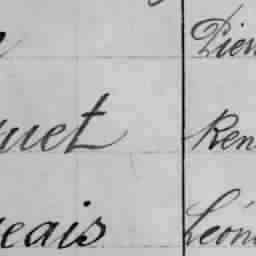 Pier
uet Ren
eais Léon